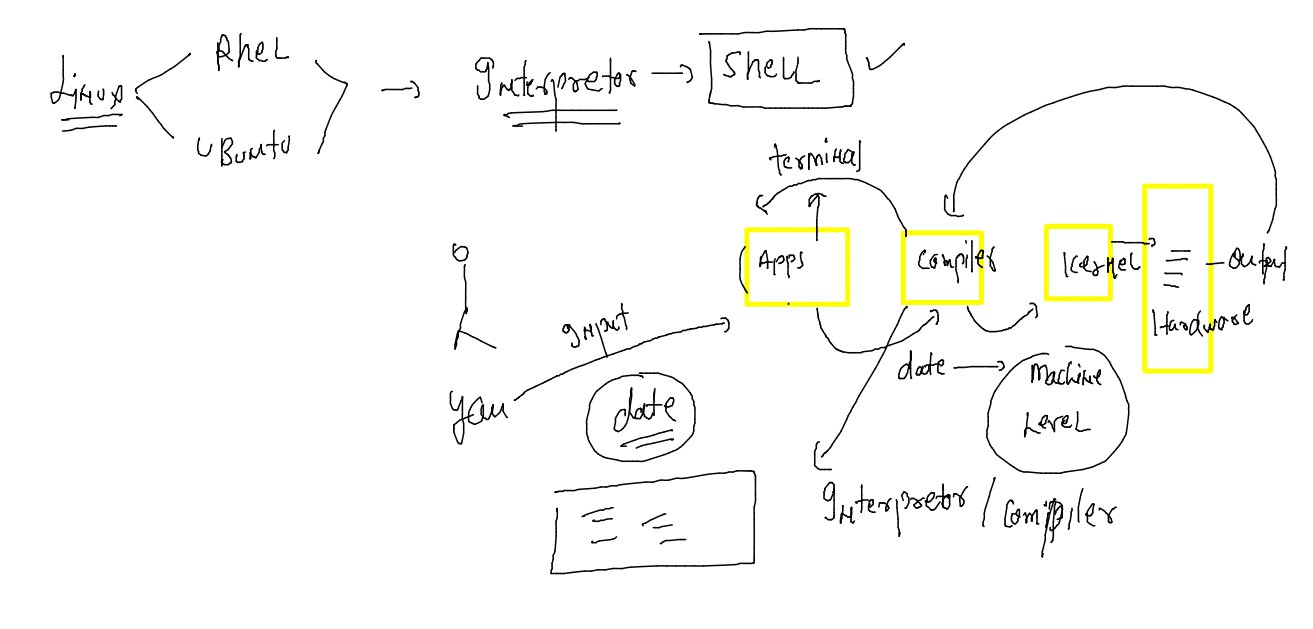 Linux
RheL
UBuntu
Interpretor
SheLL
terminal
Apps
Compiler
KerneL
Output
Hardware
Input
You
date
date
Machine
LeveL
Interpretor / Compiler